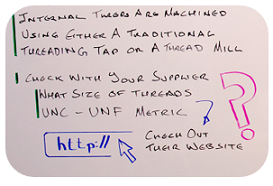 Internal Threads Are Machined
Using Either A Traditional
Threading Tap or A Thread Mill
Check With Your Supplier
What Size of Threads
UNC - UNF Metric
?
http://
Check Out
Their Website